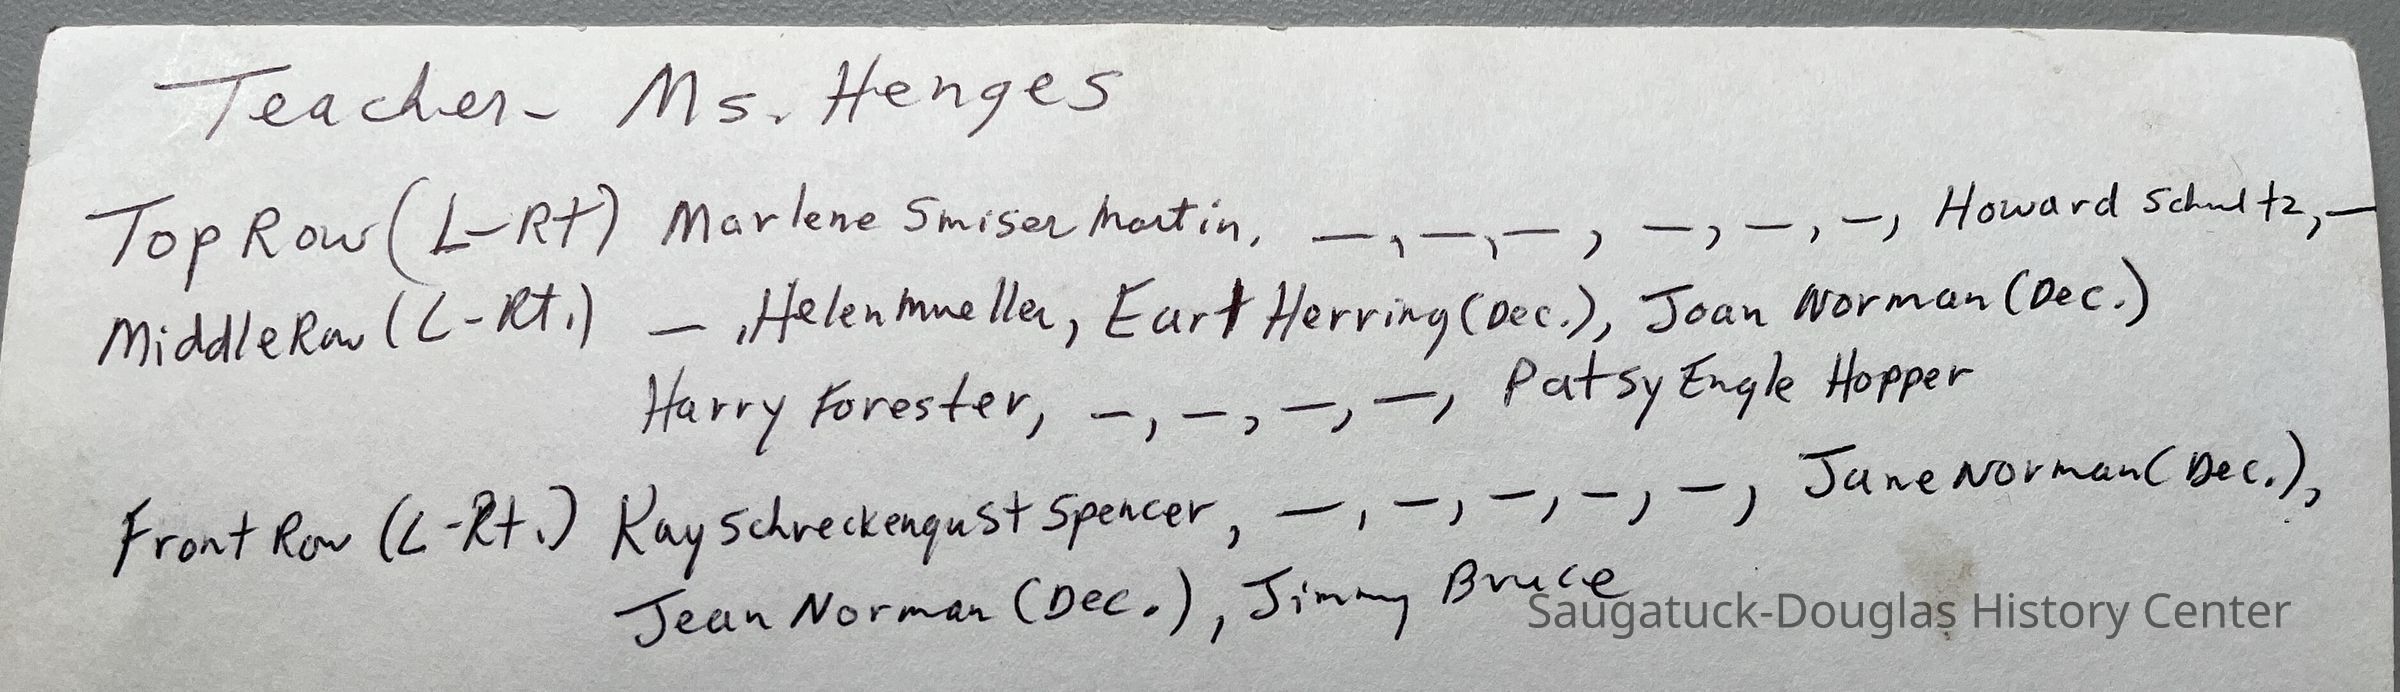 Teacher - Ms. Henges
Top Row (L-Rt) Marlene Smiser Martin, —, —, —, —, —, —, Howard Schultz, —
Middle Row (L-Rt.) —, Helen Mueller, Earl Herring (Dec.), Joan Norman (Dec.)
Harry Forester, —, —, —, —, Patsy Engle Hopper
Front Row (L-Rt.) Kay Schreckengust Spencer, —, —, —, —, —, Jane Norman (Dec.),
Jean Norman (Dec.), Jimmy Bruce
Saugatuck-Douglas History Center